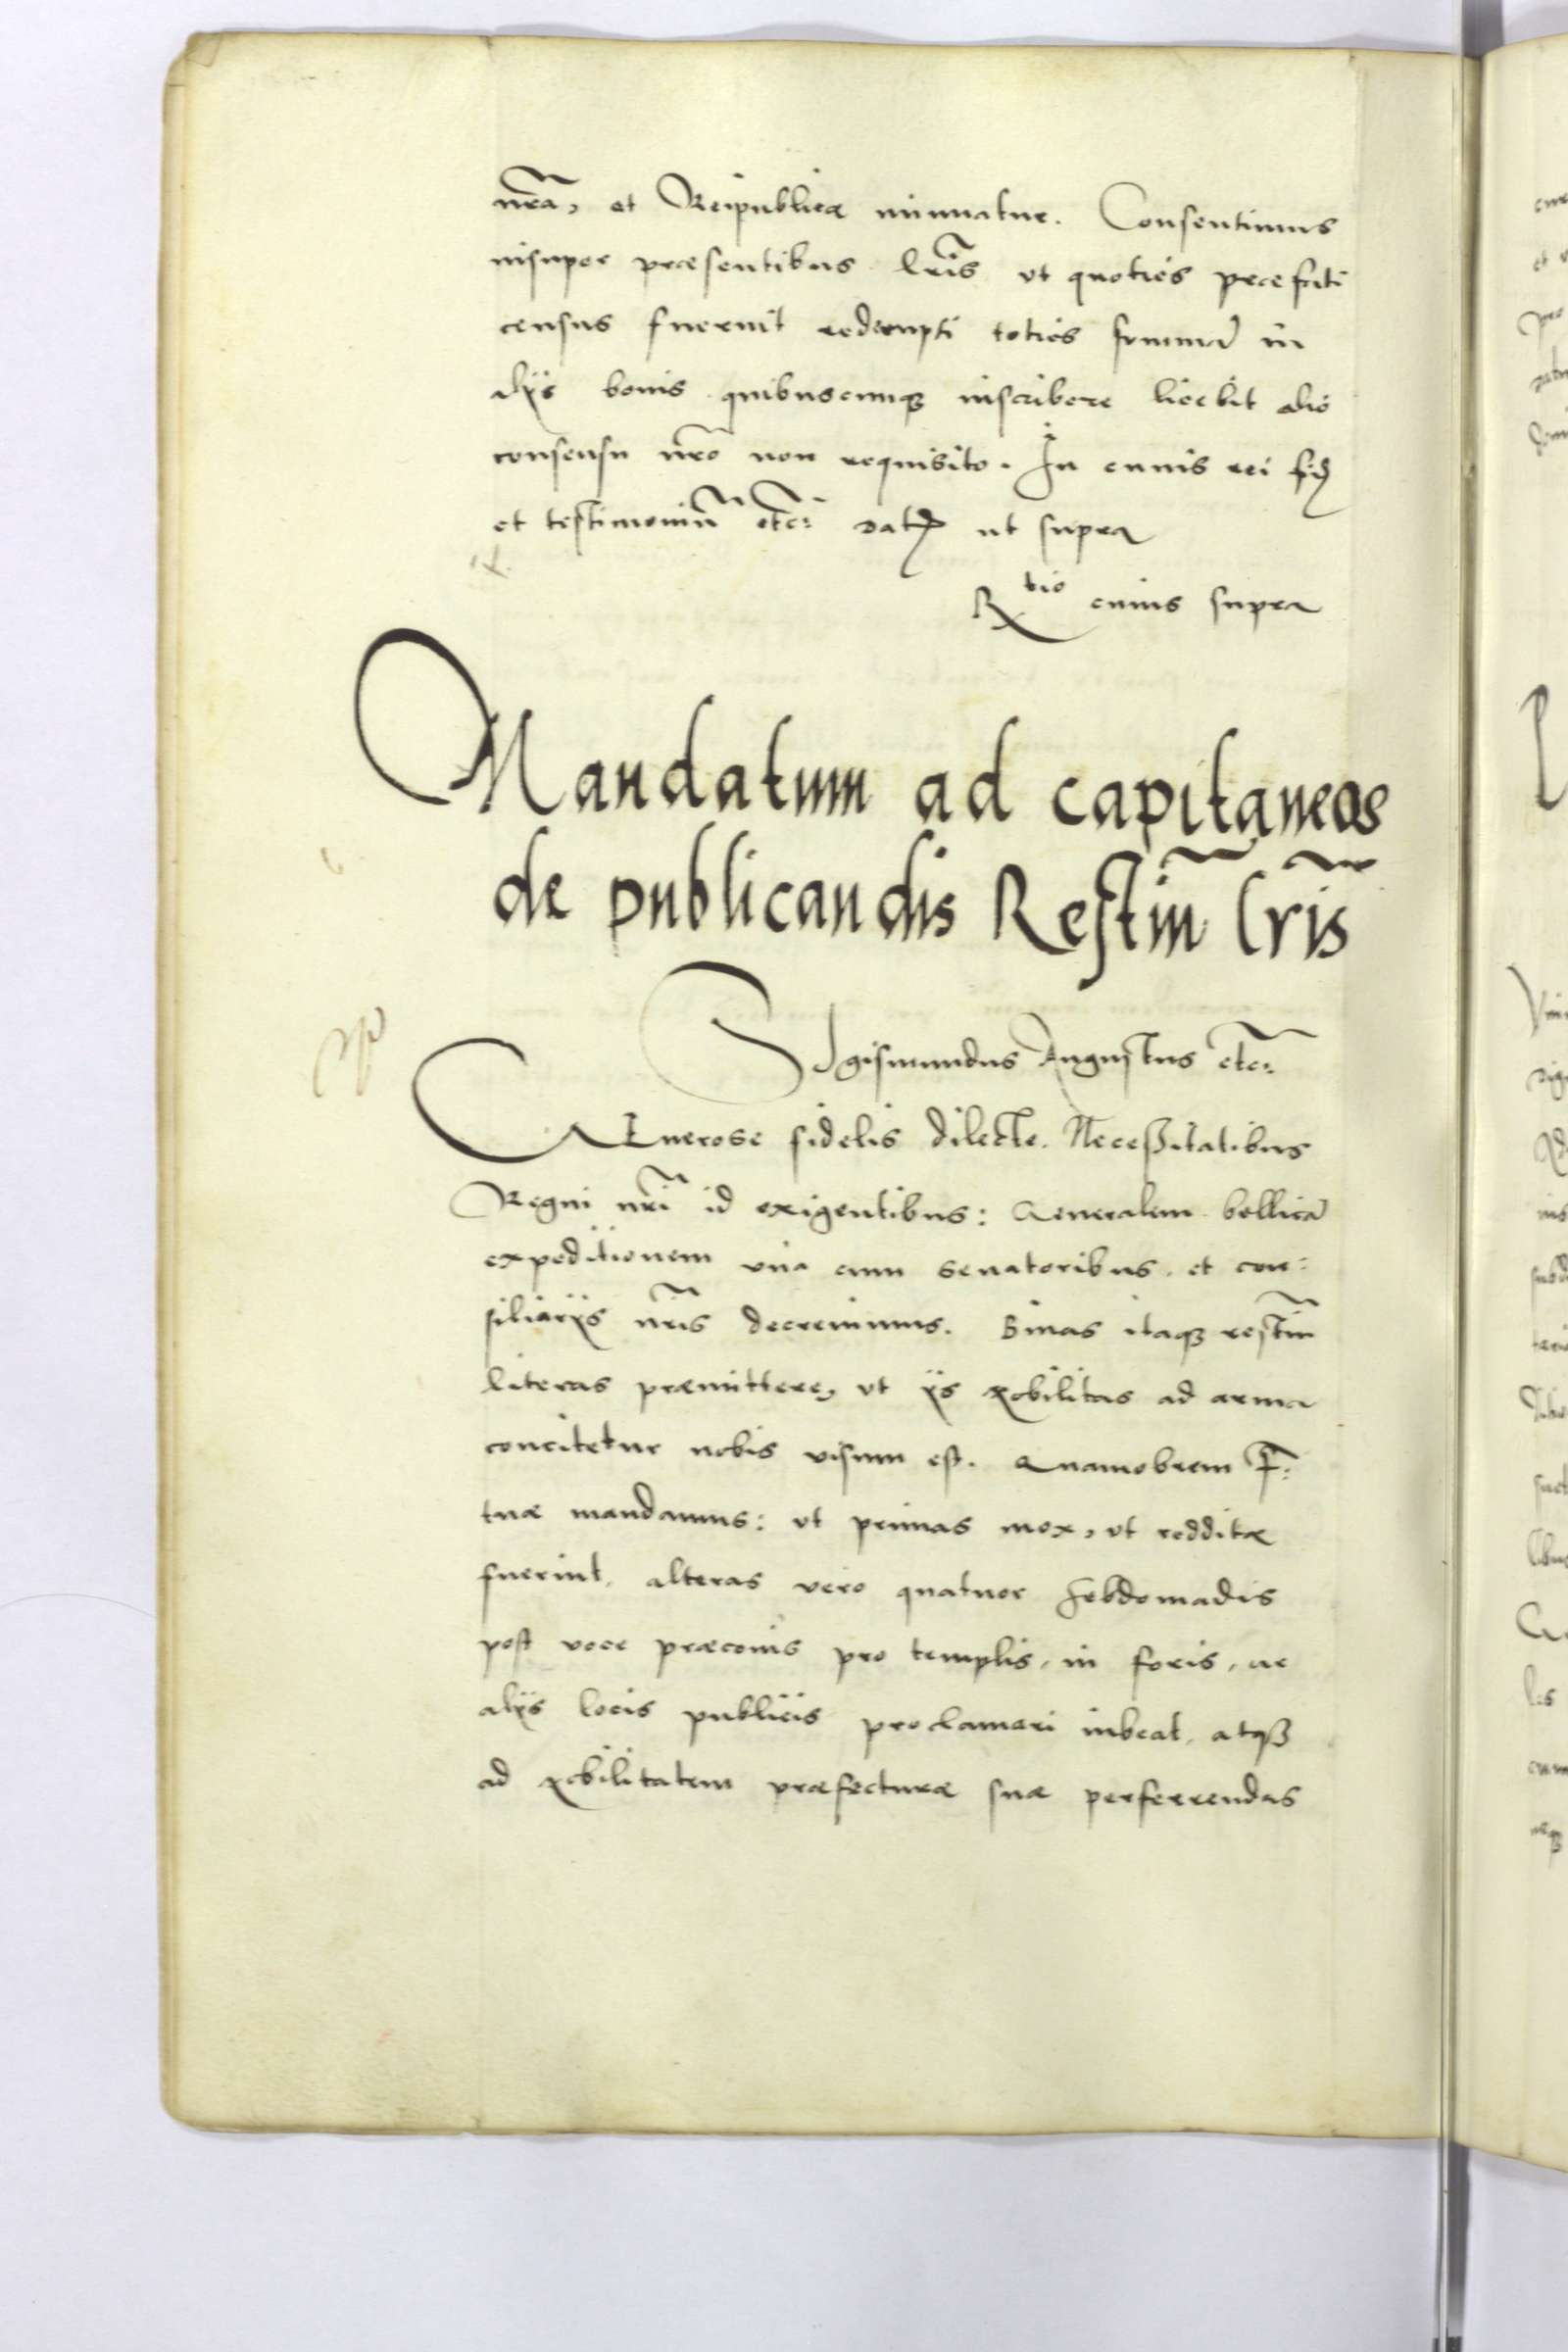 nr̃a, et Reipublicæ minuatur. Consentimus
insuper præsentibus lr̃is ut quoties præfati
census fuerint redempti toties summã in
alijs bonis quibuscunq; inscribere licebit alio
consensu nr̃o non requisito. In cuius rei fid
et testimoniũ etc: dat ut supra
Rtio cuius supra
Mandatum ad capitaneos
de publicandis Restiũ lr̃is
SIgismundus Augustus etc:
GEnerose fidelis dilecte. Neceßitatibus
Regni nr̃i id exigentibus: Generalem bellicã
expeditionem una cum senatoribus et con:
siliarijs nr̃is decrevimus. Binas itaq; restiũ
literas præmittere, ut ijs Nobilitas ad arma
concitetur nobis visum est. Quamobrem F:
tuæ mandamus: ut primas mox, ut redditæ
fuerint, alteras vero quatuor hebdomadis
post voce præconis pro templis, in foris, ac
alijs locis publicis proclamari iubeat, atq;
ad Nobilitatem præfecturæ suæ perferrendas